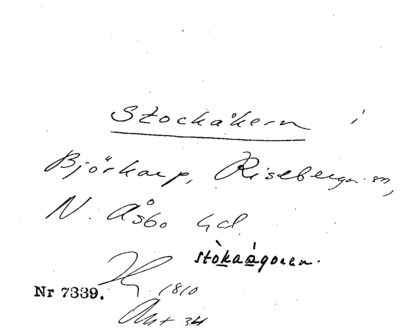 Stockåkern i
Björkarp, Riseberga sn,
N. Åsbo hd.
stòkaágoren.
1810
Nr 7339.
Akt 34